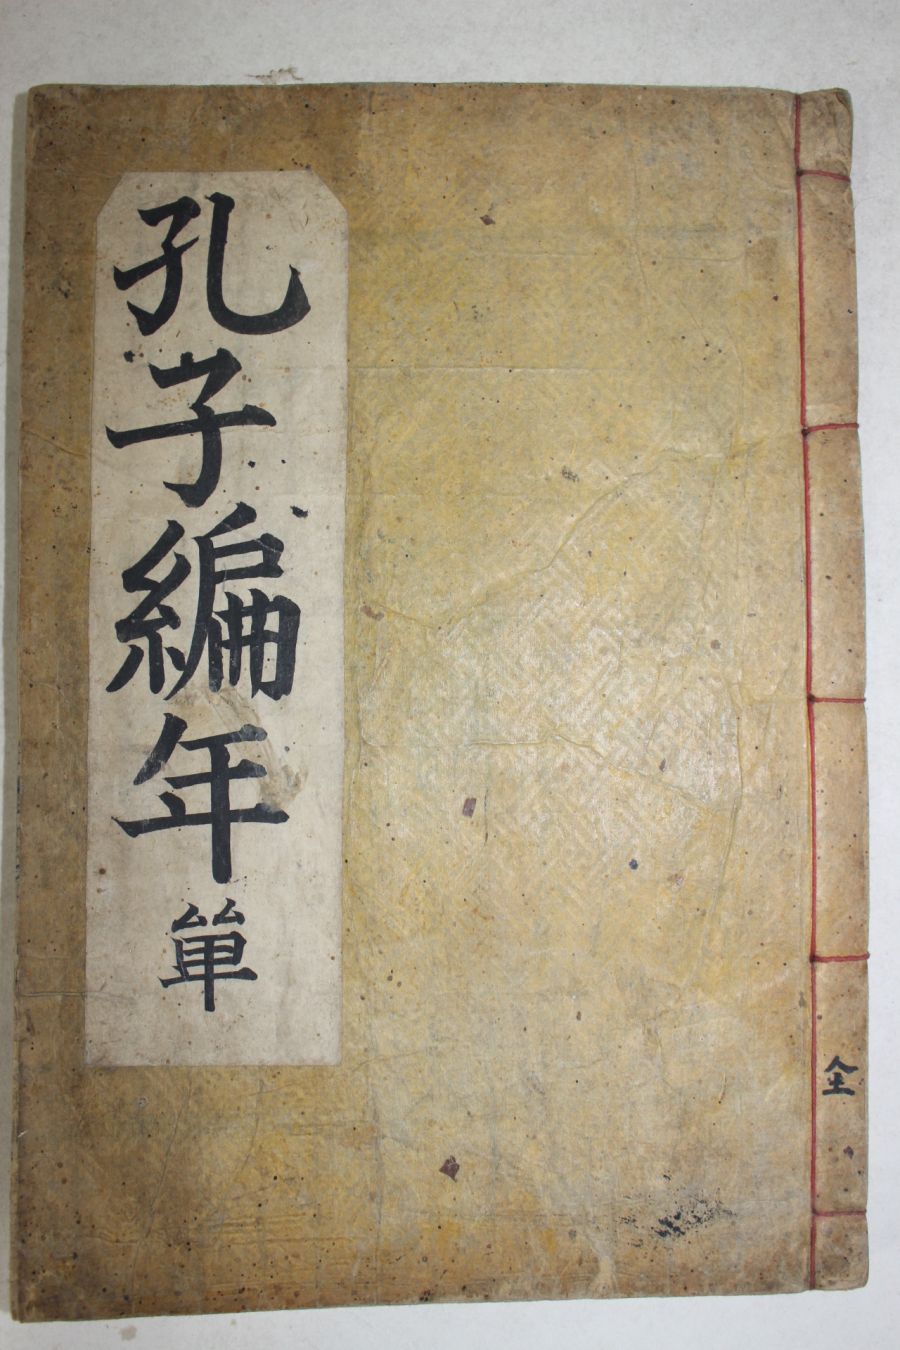 孔子編年 單
全